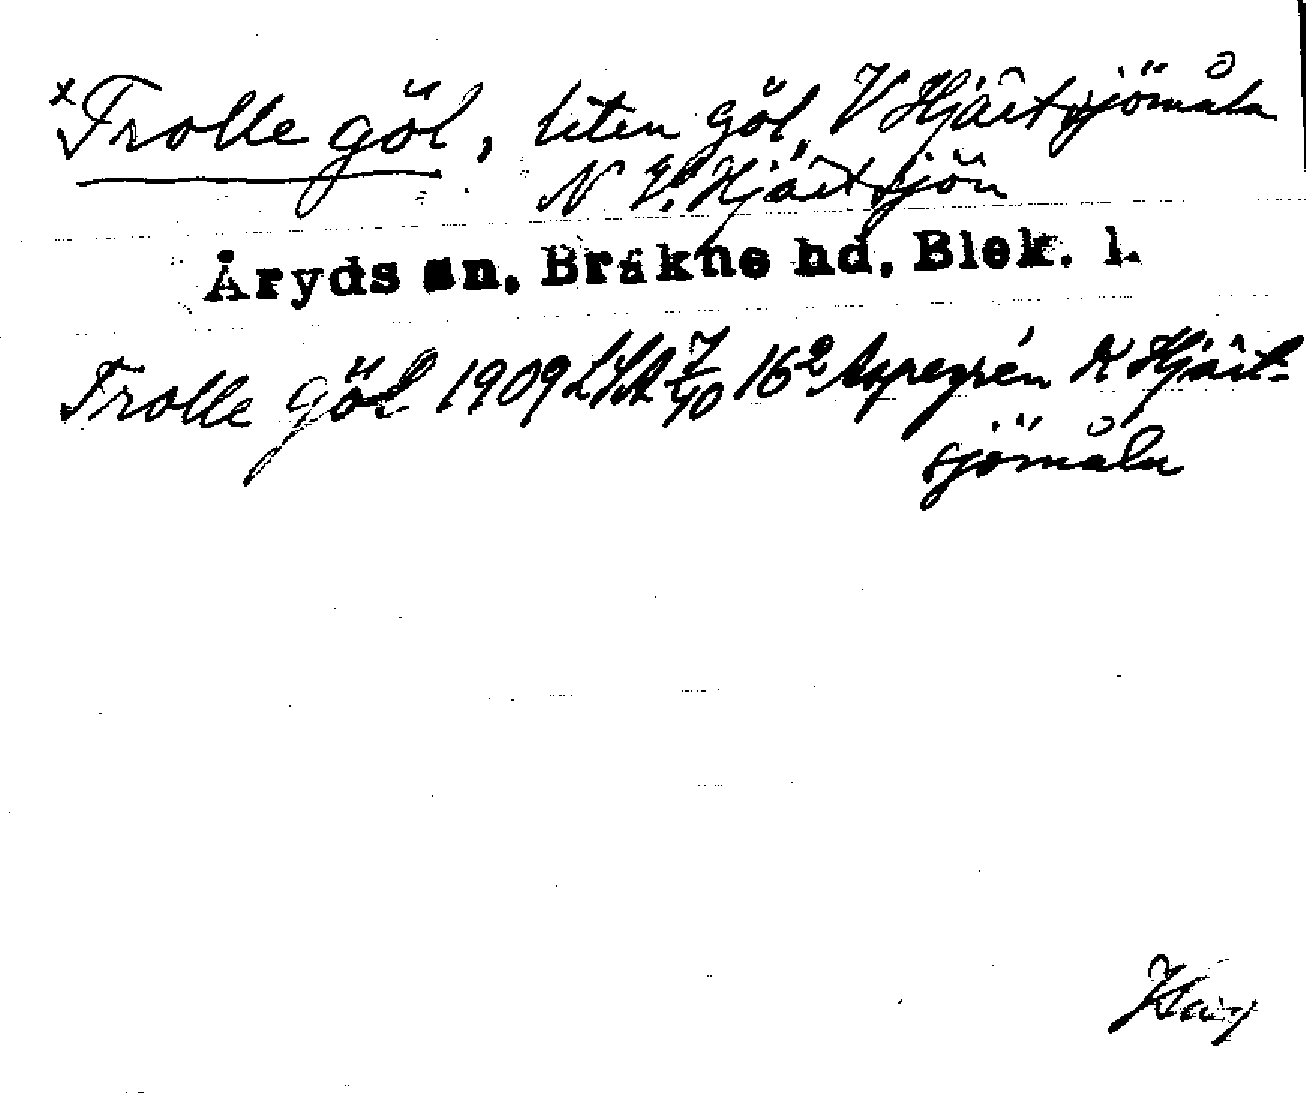 x Trolle göl, liten göl, V Hjärtsjömåla
N V. Hjärtsjön
Åryds sn, Bräkne hd, Blek. l.
Trolle göl 1909 LSA 7/40 16² Aspegrén K Hjärt-
sjömåla